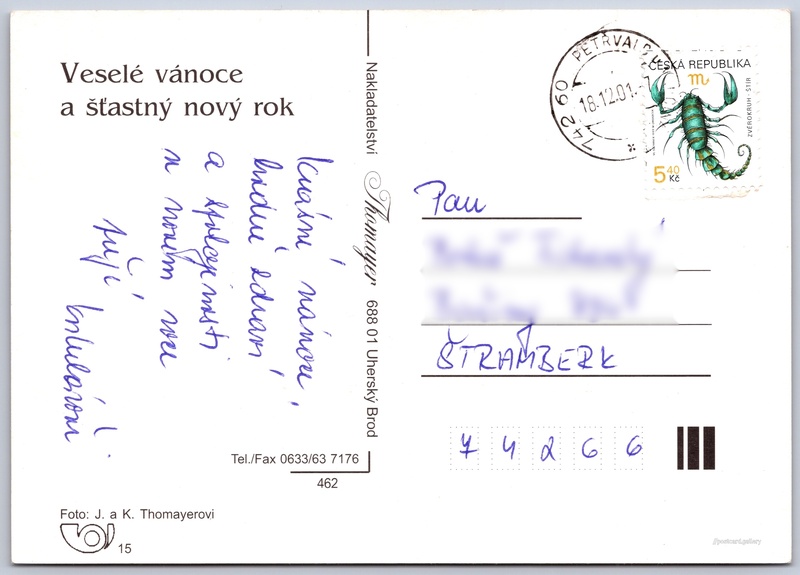 Veselé vánoce
a šťastný nový rok
Krásné vánoce,
hodně zdraví
a spokojenosti
v novém roce
přejí
Nakladatelství Thomayer 688 01 Uherský Brod
Tel./Fax 0633/63 7176
462
Foto: J. a K. Thomayerovi
15
742 60 PETŘVALD
18.12.01
ČESKÁ REPUBLIKA
ZVĚROKRUH - ŠTÍR
540 Kč
Pan
ŠTRAMBERK
74266
@postcard.gallery